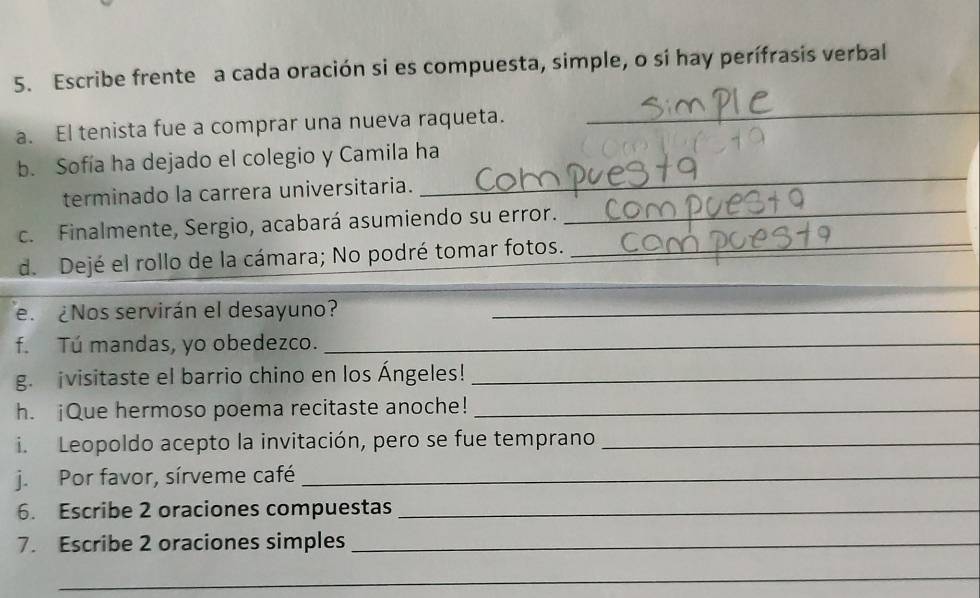 5. Escribe frente a cada oración si es compuesta, simple, o si hay perífrasis verbal
a. El tenista fue a comprar una nueva raqueta. simple
b. Sofía ha dejado el colegio y Camila ha
terminado la carrera universitaria. compuesta
c. Finalmente, Sergio, acabará asumiendo su error. compuesta
d. Dejé el rollo de la cámara; No podré tomar fotos. compuesta
e. ¿Nos servirán el desayuno?
f. Tú mandas, yo obedezco.
g. ¡visitaste el barrio chino en los Ángeles!
h. ¡Que hermoso poema recitaste anoche!
i. Leopoldo acepto la invitación, pero se fue temprano
j. Por favor, sírveme café
6. Escribe 2 oraciones compuestas
7. Escribe 2 oraciones simples